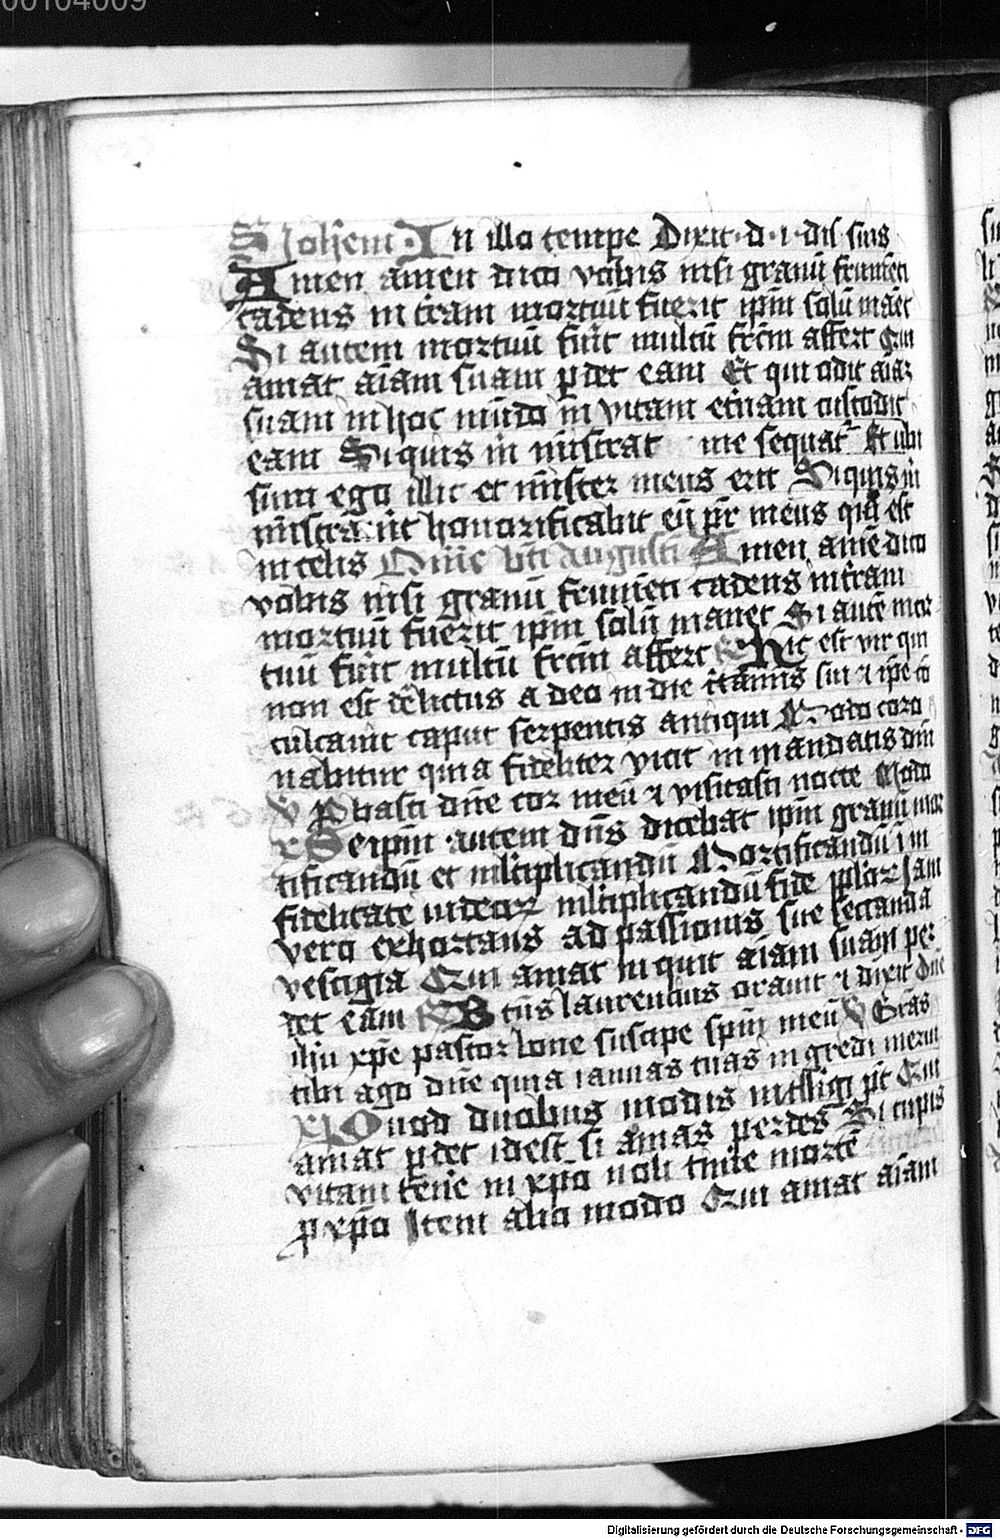 00104009
S Johem · In illo tempe Dixit · d · i · dis suis
Amen amen dico vobis nisi granū frumēti
cadens in tr̄am mortuū fuerit ipm̄ solū manet
Si autem mortuū fūit multū frcm̄ affert Qui
amat aīam suam pdet eam Et qui odit aīaz
suam in hoc mūdo in vitam et̄nam custodit
eam Siquis m̄ ministrat me sequat Et ubi
sum ego illic et mīster meus erit Siquis m̄
mīstrau̅it honorificabit eū pr̄ meus qui est
in celis Omīe bti augusti Amen amē dico
vobis nisi granū frumēti cadens in tr̄am
mortuū fuerit ipm̄ solū manet Si autē mor
tuū fūit multū frcm̄ affert R Hic est vir qui
non est dēlictus a deo in die t̄tam̄is sui ⁊ ipē cō
culcauit caput serpentis antiqui Modo coro
nabitur quia fideliter vicit in mandatis dn̄i
V Pbasti dn̄e cor meū ⁊ visitasti nocte Modo
Seipm̄ autem dn̄s dicebat ipm̄ granū mor
tificandū et mltiplicandū Mortificandū in
fidelitate iudeor mltiplicandū fide pplor Jam
vero exhortans ad passionis sue sectanda
vestigia Qui amat inquit aīam suam per
det eam R Btūs laurencius orauit ⁊ dixit dn̄e
ihu xpē pastor bone suscipe spm̄ meū V Grās
tibi ago dn̄e quia ianuas tuas ingredi merui
Quod duobus modis intelligi pt̄ Qui
amat pdet idest si amas perdes Si cupis
vitam tenē in xpo noli timē mortē
p xpō Item alio modo Qui amat aīam
Digitalisierung gefördert durch die Deutsche Forschungsgemeinschaft - DFG